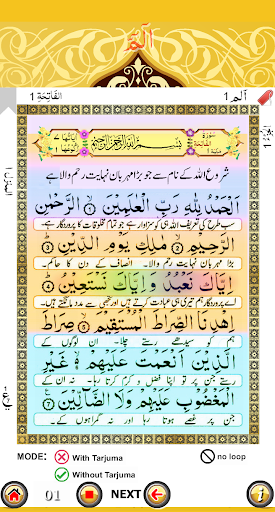 آلم
الفَاتِحَة 1
آلم 1
سُورَةُ الْفَاتِحَةِ
بِسْمِ اللهِ الرَّحْمٰنِ الرَّحِيْمِ
شروع اللہ کے نام سے جو بڑا مہربان نہایت رحم والا ہے
اَلْحَمْدُ لِلّٰهِ رَبِّ الْعٰلَمِيْنَ ۝١ الرَّحْمٰنِ
سب طرح کی تعریف اللہ ہی کو سزاوار ہے جو تمام مخلوقات کا پروردگار ہے۔
الرَّحِيْمِ ۝٢ مٰلِكِ يَوْمِ الدِّيْنِ ۝٣
بڑا مہربان نہایت رحم والا۔ انصاف کے دن کا حاکم۔
اِيَّاكَ نَعْبُدُ وَ اِيَّاكَ نَسْتَعِيْنُ ۝٤
اے پروردگار ہم تیری ہی عبادت کرتے ہیں اور تجھی سے مدد مانگتے ہیں۔
اِهْدِنَا الصِّرَاطَ الْمُسْتَقِيْمَ ۝٥ صِرَاطَ
ہم کو سیدھے رستے چلا۔ ان لوگوں کے
الَّذِيْنَ اَنْعَمْتَ عَلَيْهِمْ ۝٦ غَيْرِ
رستے جن پر تو اپنا فضل و کرم کرتا رہا۔ نہ ان کے
الْمَغْضُوْبِ عَلَيْهِمْ وَلَا الضَّآلِّيْنَ ۝٧
جن پر غصے ہوتا رہا اور نہ گمراہوں کے۔
MODE: With Tarjuma no loop
Without Tarjuma
01 NEXT